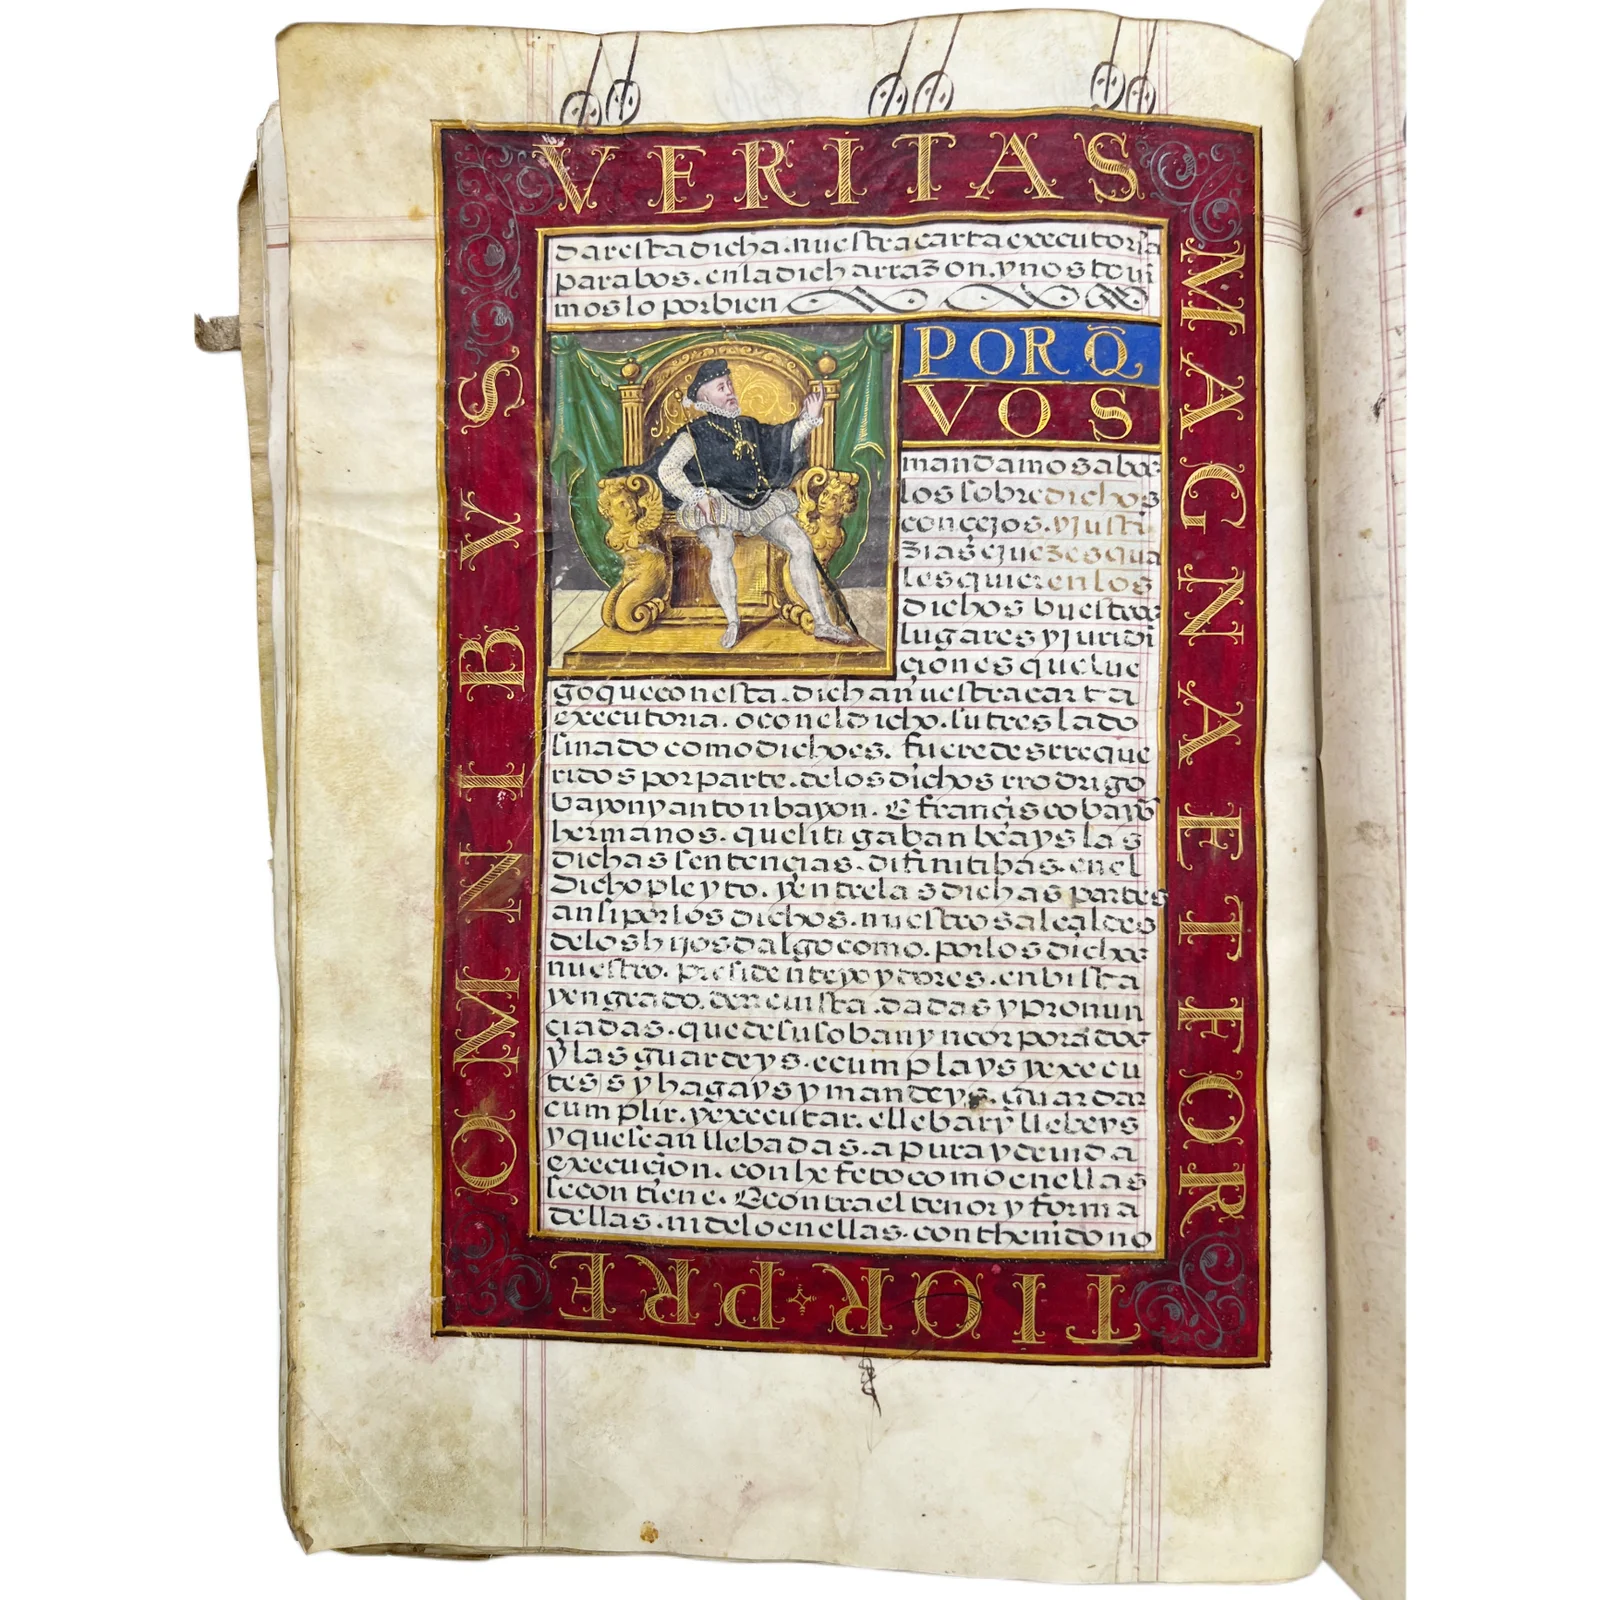 VERITAS
MAGNA ET FOR
TIOR · PRE
OMNIBVS
dar esta dicha. nuestra carta executoria
para bos. en la dicha rrazon. y nos tovi
mos lo por bien
POR Q̃
VOS
mandamos a bos
los sobre dichos
concejos. y justi
zias e juezes qua
les quier en los
dichos buestros
lugares y juridi
çiones que lue
go que con esta. dicha nuestra carta
executoria. o con el dicho. su treslado
sinado como dicho es. fueredes rreque
ridos por parte. de los dichos rrodrigo
bayon y anton bayon. E françisco bayõ
hermanos. que litigaban beays las
dichas sentençias. difinitibas. en el
dicho pleyto. y entre las dichas partes
ansi por los dichos. nuestros alcaldes
de los hijos dalgo como. por los dichos
nuestro. presidente y oydores. en bista
y en grado. de rrevista. dadas y pronun
çiadas. que de suso ban yncorporados
y las guardeys. e cumplays y execu
teys y hagays y mandeys. guardar
cumplir. y executar. e llebar y llebeys
y que sean llebadas. a pura y devida
execuçion. con hefeto como en ellas
se contiene. E contra el tenor y forma
dellas. ni de lo en ellas. conthenido no